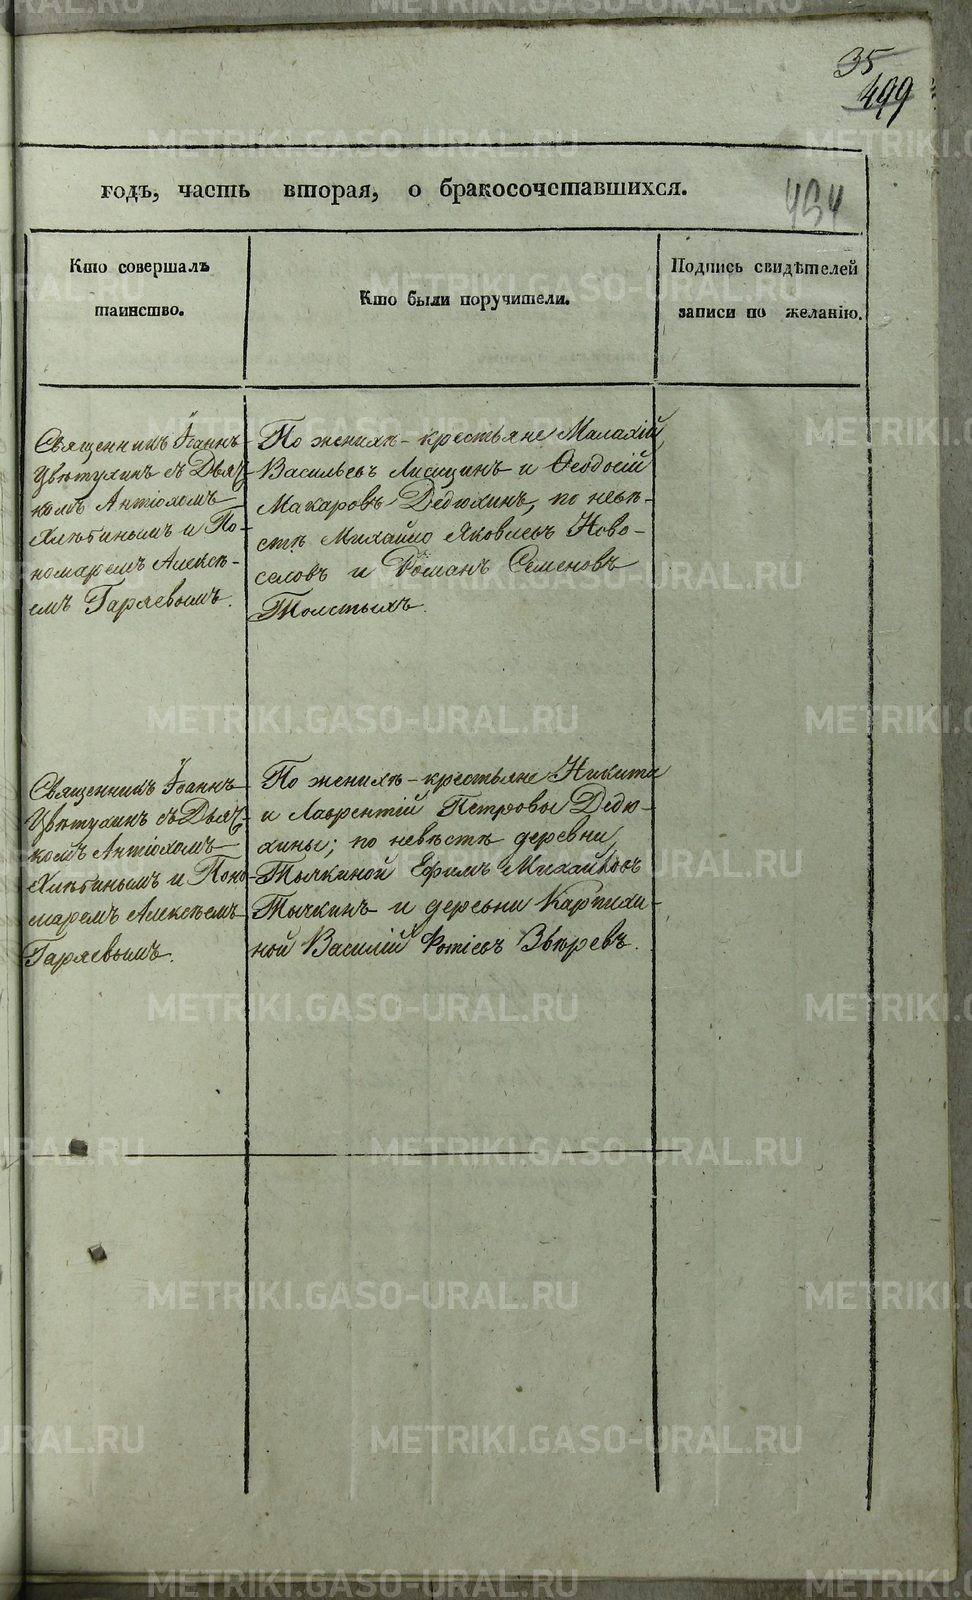 35
499
годъ, часть вторая, о бракосочетавшихся.
434
Кто совершалъ
таинство.
Кто были поручители.
Подпись свидѣтелей
записи по желанію.
Священникъ Іоаннъ
Цвѣтухинъ съ Дьяч-
комъ Антіохомъ
Хлѣбинымъ и По-
номаремъ Алексѣ-
емъ Гаряевымъ.
По женихѣ - крестьяне Малахій
Васильевъ Лисицинъ и Ѳеодосій
Макаровъ Дедюхинъ, по невѣ-
стѣ Михайло Яковлевъ Ново-
селовъ и Романъ Семеновъ
Толстыхъ.
Священникъ Іоаннъ
Цвѣтухинъ съ Дьяч-
комъ Антіохомъ
Хлѣбинымъ и Поно-
маремъ Алексѣемъ
Гаряевымъ.
По женихѣ - крестьяне Никита
и Лаврентій Петровы Дедю-
хины; по невѣстѣ деревни
Тычкиной Ефимъ Михайловъ
Тычкинъ и деревни Карпихи-
ной Василій Фотіевъ Звѣревъ.
METRIKI.GASO-URAL.RU